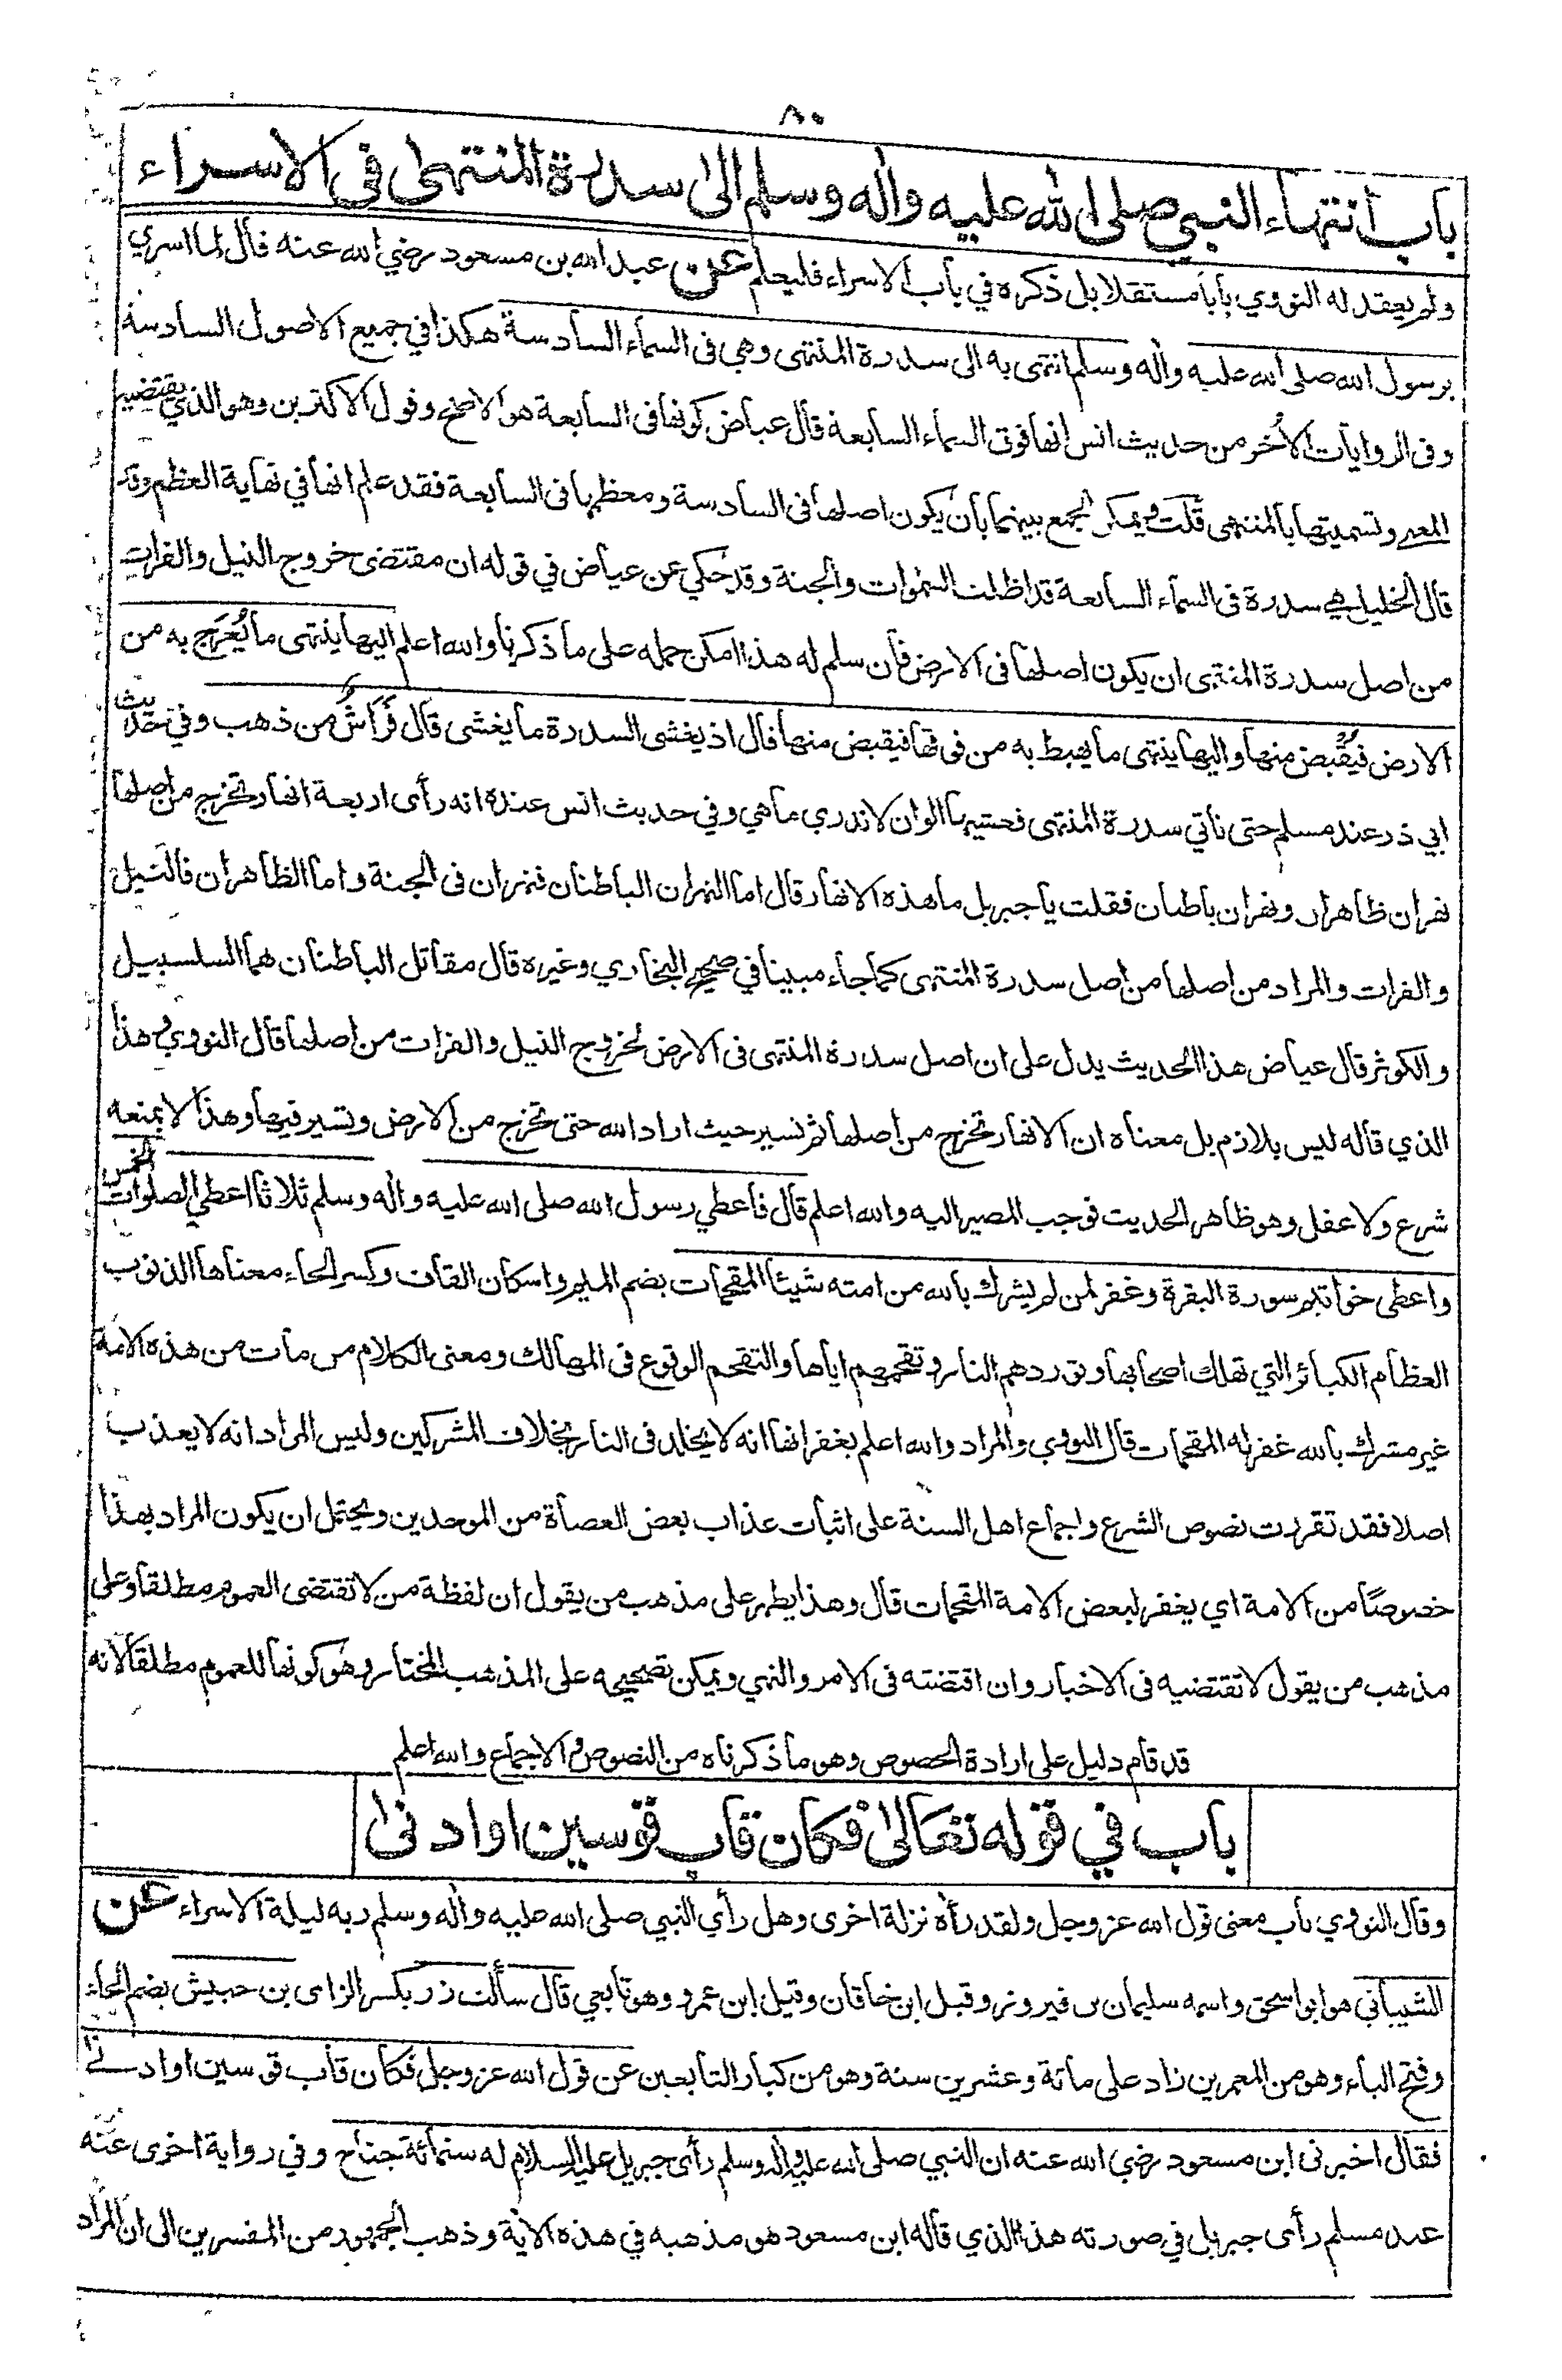 ٨٠
باب انتهاء النبي صلى الله عليه واٰله وسلم الىٰ سدرة المنتهىٰ فى الاسراء
ولم يعقد له النووي بابا مستقلا بل ذكره في باب الاسراء فليعلم عن عبد الله بن مسعود رضي الله عنه قال لما اسري
برسول الله صلى الله عليه واٰله وسلم انتهى به الى سدرة المنتهى وهي فى السماء السادسة هكذا في جميع الاصول السادسة
وفى الروايات الاُخر من حديث انس انها فوق السماء السابعة قال عياض كونها فى السابعة هو الاصح وقول الاكثرين وهو الذي يقتضيه
المعنى وتسميتها بالمنتهى قلت ويمكن الجمع بينهما بان يكون اصلها فى السادسة ومعظمها فى السابعة فقد علم انها في نهاية العظم وقد
قال الخليل هي سدرة فى السماء السابعة قد اظلت السموات والجنة وقد حكي عن عياض في قوله ان مقتضى خروج النيل والفرات
من اصل سدرة المنتهى ان يكون اصلها فى الارض فان سلم له هذا امكن حمله على ما ذكرنا والله اعلم اليها ينتهى ما يُعرَج به من
الارض فيُقْبض منها واليها ينتهى ما يهبط به من فوقها فيقبض منها قال اذ يغشى السدرة ما يغشى قال فَرَاشٌ من ذهب وفي حديث
ابي ذر عند مسلم حتى ناتي سدرة المنتهى فغشيها الوان لا ندري ما هي وفي حديث انس عنده انه رأى اربعة انهار تخرج من اصلها
نهران ظاهران ونهران باطنان فقلت يا جبريل ما هذه الانهار قال اما النهران الباطنان فنهران فى الجنة واما الظاهران فالنيل
والفرات والمراد من اصلها من اصل سدرة المنتهى كما جاء مبينا في صحيح البخاري وغيره قال مقاتل الباطنان هما السلسبيل
والكوثر قال عياض هذا الحديث يدل على ان اصل سدرة المنتهى فى الارض لخروج النيل والفرات من اصلها قال النووي وهذا
الذي قاله ليس بلازم بل معناه ان الانهار تخرج من اصلها ثم تسير حيث اراد الله حتى تخرج من الارض وتسير فيها وهذا لا يمنعه
شرع ولا عقل وهو ظاهر الحديث فوجب المصير اليه والله اعلم قال فاعطي رسول الله صلى الله عليه واٰله وسلم ثلاثا اعطي الصلوات الخمس
واعطى خواتيم سورة البقرة وغفر لمن لم يشرك بالله من امته شيئا المقحمات بضم الميم واسكان القاف وكسر الحاء معناها الذنوب
العظام الكبائر التي تهلك اصحابها وتوردهم النار وتقحمهم اياها والتقحم الوقوع فى المهالك ومعنى الكلام من مات من هذه الامة
غير مشرك بالله غفر له المقحمات قال النووي والمراد والله اعلم بغفرانها انه لا يخلد فى النار بخلاف المشركين وليس المراد انه لا يعذب
اصلا فقد تقررت نصوص الشرع واجماع اهل السنة على اثبات عذاب بعض العصاة من الموحدين ويحتمل ان يكون المراد بهذا
خصوصًا من الامة اي يغفر لبعض الامة المقحمات قال وهذا يظهر على مذهب من يقول ان لفظة من لا تقتضى العموم مطلقا وعلى
مذهب من يقول لا تقتضيه فى الاخبار وان اقتضته فى الامر والنهي ويمكن تصحيحه على المذهب المختار وهو كونها للعموم مطلقا لانه
قد قام دليل على ارادة الخصوص وهو ما ذكرناه من النصوص والاجماع والله اعلم
باب في قوله تعالىٰ فكان قاب قوسين او ادنىٰ
وقال النووي باب معنى قول الله عز وجل ولقد رأٰه نزلة اخرى وهل رأي النبي صلى الله عليه واٰله وسلم ربه ليلة الاسراء عن
الشيباني هو ابو اسحق واسمه سليمان بن فيروز وقيل ابن خاقان وقيل ابن عمرو وهو تابعي قال سألت زر بكسر الزاى بن حبيش بضم الحاء
وفتح الباء وهو من المعمرين زاد على مائة وعشرين سنة وهو من كبار التابعين عن قول الله عز وجل فكان قاب قوسين او ادنىٰ
فقال اخبرنى ابن مسعود رضي الله عنه ان النبي صلى الله عليه واٰله وسلم رأى جبريل عليه السلام له ستمائة جناح وفي رواية اخرى عنه
عند مسلم رأى جبريل في صورته هذا الذي قاله ابن مسعود هو مذهبه في هذه الاية وذهب الجمهور من المفسرين الى ان المراد